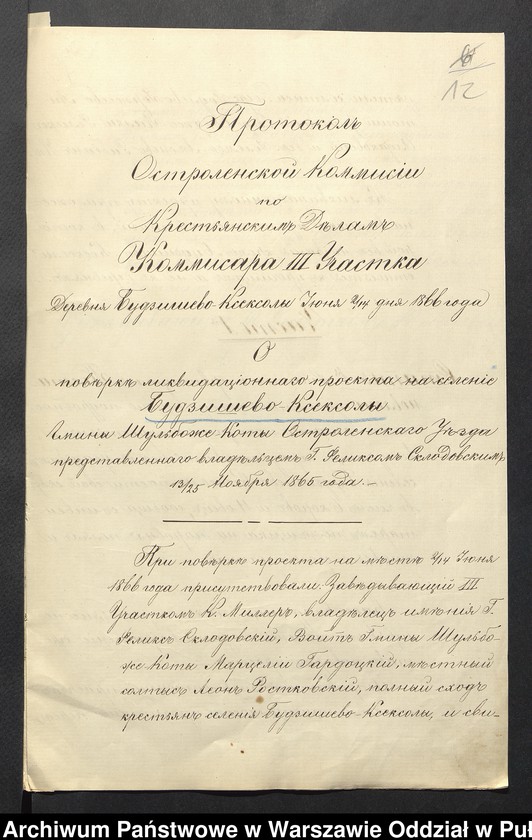 12
Протоколъ
Остроленской Коммисіи
по
Крестьянскимъ Дѣламъ
Коммисара III Участка
Деревня Будзишево-Ксексолы Іюня 2/14 дня 1866 года
О
повѣркѣ ликвидаціоннаго проекта на селеніе
Будзишево-Ксексолы
Гмины Шульбоже Коты Остроленскаго Уѣзда
представленнаго владѣльцемъ Г. Феликсомъ Склодовскимъ
13/25 Ноября 1865 года.–
При повѣркѣ проекта на мѣстѣ 2/14 Іюня
1866 года присутствовали: Завѣдывающій III
Участкомъ К. Миллеръ, владѣлецъ имѣнія Г.
Феликсъ Склодовскій, Войтъ Гмины Шульбо-
же Коты Марцелій Гардоцкій, мѣстный
солтысъ Леонъ Ростковскій, полный сходъ
крестьянъ селенія Будзишево-Ксексолы, и сви-
Archiwum Państwowe w Warszawie Oddział w Puł